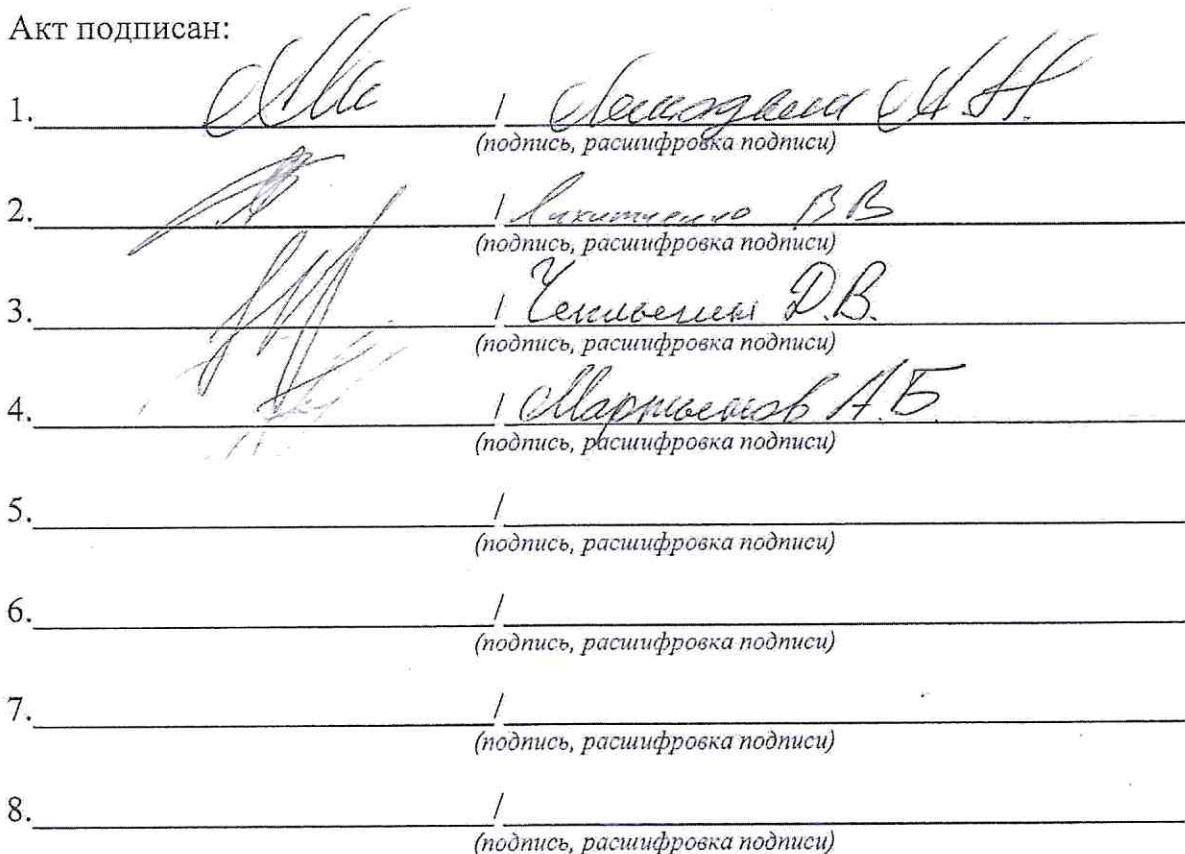 Акт подписан:
1. / А.Н.
(подпись, расшифровка подписи)
2. / Никитченко В В
(подпись, расшифровка подписи)
3. / Д.В.
(подпись, расшифровка подписи)
4. / Мартьянов А.Б.
(подпись, расшифровка подписи)
5. /
(подпись, расшифровка подписи)
6. /
(подпись, расшифровка подписи)
7. /
(подпись, расшифровка подписи)
8. /
(подпись, расшифровка подписи)